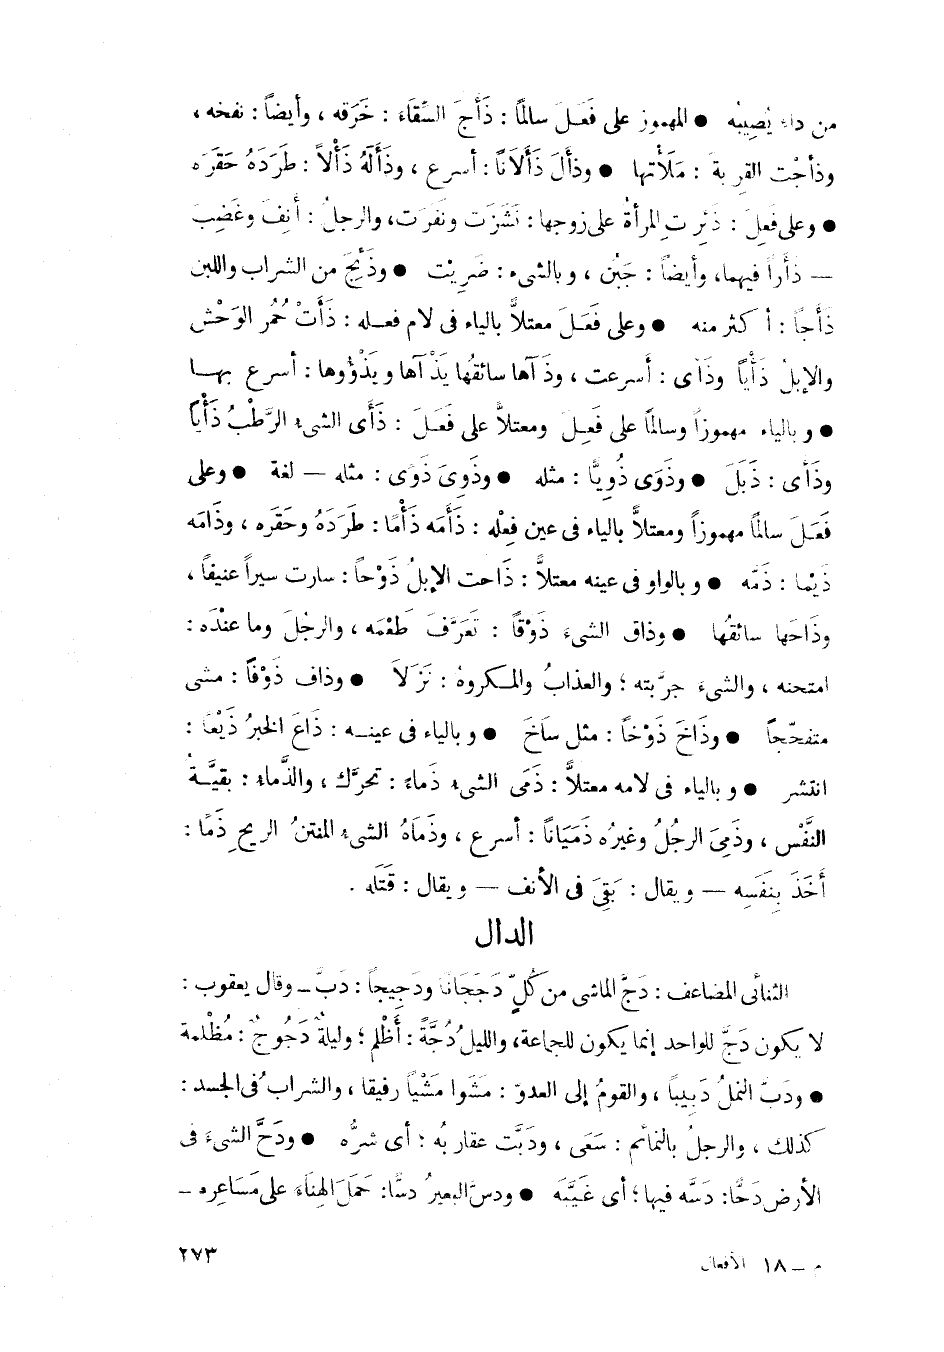 من داء يُصِيبُه ● المهموز على فَعَـلَ سالمًا : ذَأَجَ السِّقَاءَ : خَرَقه ، وأيضاً : نفخه ،
وذأجْت القربةَ : مَلَأْتها ● وذأَلَ ذَأَلَاناً : أسرع ، وذَأَلَهُ ذَأْلاً : طَرَدَهُ حَقَرَه
● وعلى فَعِلَ : ذَئِرتِ المرأةُ على زوجها : نَشَزَت ونَفَرَت، والرجلُ : أَنِفَ وغَضِبَ
— ذَأَراً فيهما، وأيضاً : جَبُن ، وبالشىء : ضَرِيْت ● وذَئِجَ من الشراب واللبن
ذَأَجاً : أكثر منه ● وعلى فَعَـلَ معتلاًّ بالياء فى لام فعـله : ذَأَتْ حُمُر الوَحْش
والإبلُ ذَأْياً وذَأى : أَسرعت ، وذَآها سائقُها يَذْآها ويَذْؤُوها : أسرع بهـا
● وبالياء مهموزاً وسالمًا على فَعِـلَ ومعتلاًّ على فَعَـلَ : ذَأَى الشىء الرَّطْبُ ذَأْياً
وذَأى : ذَبَلَ ● وذَوَى ذُوِيًّا : مثله ● وذَوِىَ ذَوًى : مثله — لغة ● وعلى
فَعَـلَ سالمًا مهموزاً ومعتلاًّ بالياء فى عين فِعْله : ذَأَمَه ذَأْمًا : طَرَدَهُ وحَقَره ، وذَامَه
ذَيْمًا : ذَمَّه ● وبالواو فى عينه معتلاًّ : ذَاحت الإبلُ ذَوْحاً : سارت سيراً عنيفاً ،
وذَاحَها سائقُها ● وذاق الشىءَ ذَوْقاً : تَعَرَّفَ طَعْمَه ، والرجُلَ وما عنْدَه :
امتحنه ، والشىءَ جرَّبته ؛ والعذابُ والمـكروهُ : نَزَلاَ ● وذاف ذَوْفاً : مشى
متفحّجاً ● وذَاخَ ذَوْخاً : مثل سَاخَ ● وبالياء فى عينـه : ذَاعَ الخبرُ ذَيْعًا :
انتشر ● وبالياء فى لامه معتلاًّ : ذَمَى الشىء ذَماءً : تحرَّك ، والذَّماء : بقيَّـةُ
النَّفْس ، وذَمِىَ الرجُلُ وغيرُه ذَمَيَاناً : أسرع ، وذَمَاهُ الشىء المنتنُ الريحِ ذَمًا :
أَخَذَ بِنَفَسِه — ويقال : بَقِىَ فى الأنف — ويقال : قَتَلَه .
الدال
الثنائى المضاعف : دَجَّ الماشى من كُلٍّ دَجَجَانًا ودَجِيجاً : دَبَّ ــ وقال يعقوب :
لا يكون دَجَّ للواحد إنما يكون للجماعة، والليلُ دُجَّةً : أَظْلم ؛ وليلةٌ دَجُوجٌ : مُظْلمة
● ودَبَّ النملُ دَبِيباً ، والقومُ إلى العدوّ : مَشَوا مَشْياً رفيقا ، والشرابُ فى الجسد :
كذلك ، والرجلُ بالنمائم : سَعَى ، ودَبَّت عقاربُه ؛ أى شرُّه ● ودَحَّ الشىءَ فى
الأرض دَحًّا: دَسَّه فيها ؛ أى غَيَّبَه ● ودسَّ البعيرُ دسًّا: حَمَلَ الهِنَاءَ على مَسَاعِرِه ــ
م ــ ١٨ الأفعال
٢٧٣